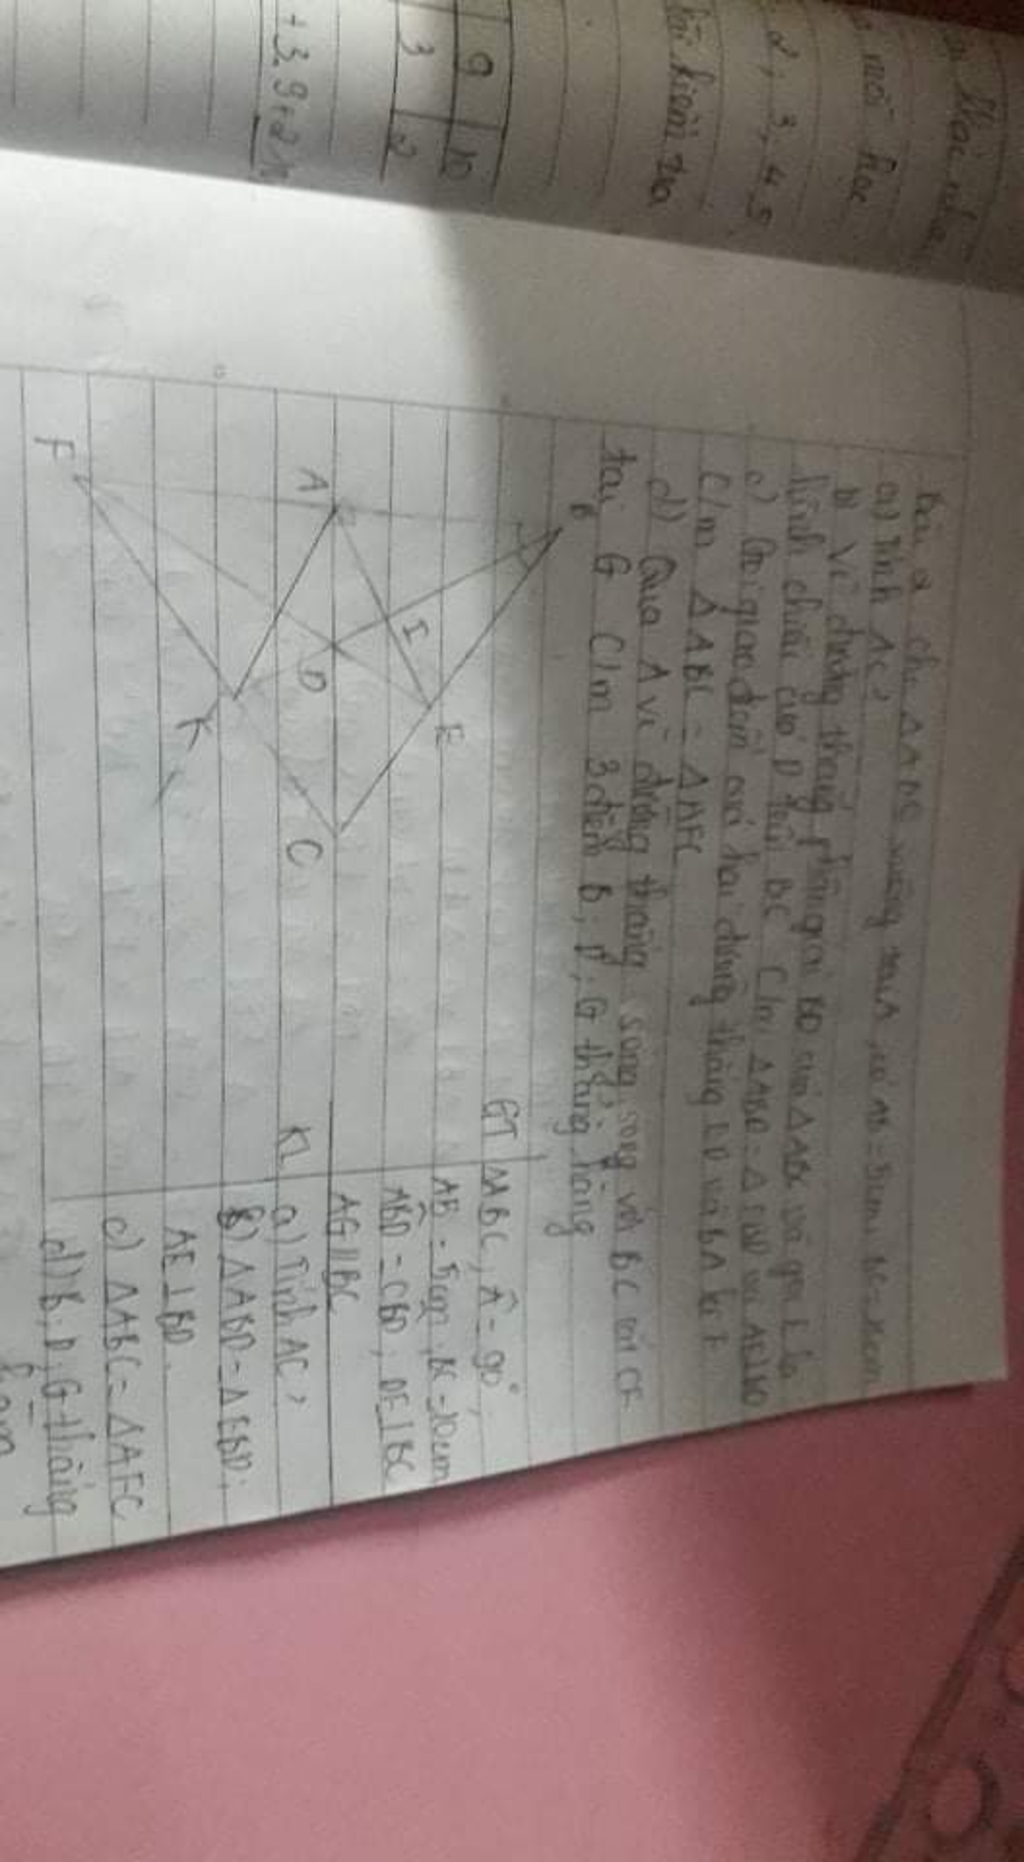 mỗi học
2, 3, 4, 5
bài kiểm tra
9 10
3 2
+ 3.9 + 2.1
Bài 2 cho ΔABC vuông tại A, có AB = 5cm, BC = 10cm
a) Tính AC?
b) Vẽ đường thẳng phân giác BD của ΔABC và gọi E là
hình chiếu của D trên BC C/m ΔABD = ΔEBD và AE⊥BD
c) Gọi giao điểm của hai đường thẳng ED và BA là F
C/m ΔABC = ΔAFC
d) Qua A vẽ đường thẳng song song với BC cắt CF
tại G C/m 3 điểm B, D, G thẳng hàng
B
A
I
E
D
C
K
F
GT ΔABC, Â = 90°,
AB = 5cm, BC = 10cm
ABD = CBD, DE⊥BC
AG//BC
KL a) Tính AC?
b) ΔABD = ΔEBD;
AE⊥BD.
c) ΔABC = ΔAFC
d) B, D, G thẳng
hàng